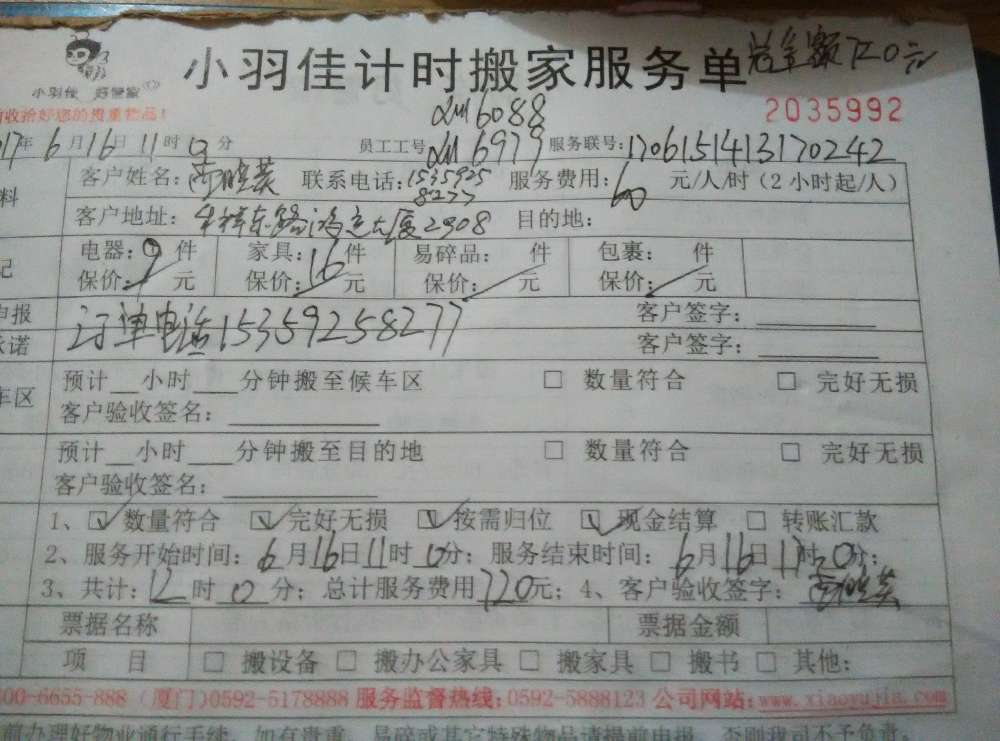 小羽佳计时搬家服务单 总金额720元
小羽佳 好管家
前收拾好您的贵重物品！ 2035992
XM6088
017年6月16日11时0分 员工工号 XM6979 服务联号:1706151413170242
客户姓名: 联系电话:15359258277 服务费用:60元/人/时（2小时起/人）
客户地址: 大厦2908 目的地:
电器:9件 家具:16件 易碎品: 件 包裹: 件
保价: 元 保价: 元 保价: 元 保价: 元
申报 订单电话15359258277 客户签字:
承诺 客户签字:
车区 预计 小时 分钟搬至候车区 □ 数量符合 □ 完好无损
客户验收签名:
预计 小时 分钟搬至目的地 □ 数量符合 □ 完好无损
客户验收签名:
1、☑数量符合 ☑完好无损 ☑按需归位 ☑现金结算 □转账汇款
2、服务开始时间:6月16日11时0分; 服务结束时间:6月16日17时0分;
3、共计:12时0分; 总计服务费用720元; 4、客户验收签字:
票据名称 票据金额
项 目 □搬设备 □搬办公家具 □搬家具 □搬书 □其他:
00-6655-888（厦门)0592-5178888 服务监督热线:0592-5888123 公司网站:www.xiaoyujia.com
前办理好物业通行手续，如有贵重、易碎或其它特殊物品请提前申报，否则我司不予负责。